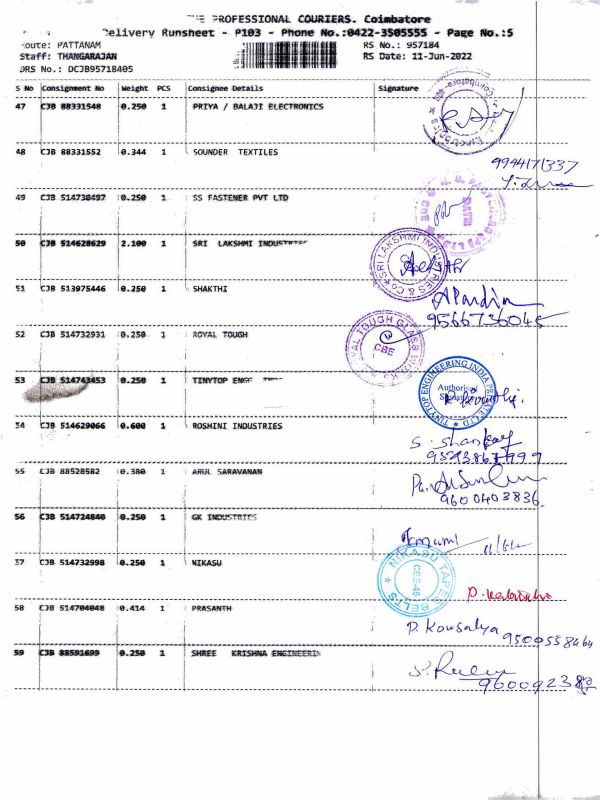 THE PROFESSIONAL COURIERS. Coimbatore
Delivery Runsheet - P103 - Phone No.:0422-3505555 - Page No.:5
Route: PATTANAM RS No.: 957184
Staff: THANGARAJAN RS Date: 11-Jun-2022
DRS No.: DCJB95718405
S No Consignment No Weight PCS Consignee Details Signature
47 CJB 88331548 0.250 1 PRIYA / BALAJI ELECTRONICS
48 CJB 88331552 0.344 1 SOUNDER TEXTILES
9944171337
49 CJB 514730497 0.250 1 SS FASTENER PVT LTD
50 CJB 514628629 2.100 1 SRI LAKSHMI INDUSTRIES
SRI LAKSHMI INDUSTRIES & CO
51 CJB 513975446 0.250 1 SHAKTHI
A Pandian
9566736045
52 CJB 514732931 0.250 1 ROYAL TOUGH
ROYAL TOUGH GLASS
CBE
53 CJB 514743453 0.250 1 TINYTOP ENGG
TINYTOP ENGINEERING INDIA PRIVATE LTD
Authorised
54 CJB 514629066 0.600 1 ROSHINI INDUSTRIES
55 CJB 88528582 0.380 1 ARUL SARAVANAN
9600403836
56 CJB 514724840 0.250 1 GK INDUSTRIES
57 CJB 514732998 0.250 1 NIKASU
NIKASU TAPES BELTS
CBE-45
58 CJB 514704048 0.414 1 PRASANTH
P. Kousalya
9500558464
59 CJB 88591699 0.250 1 SHREE KRISHNA ENGINEERIN